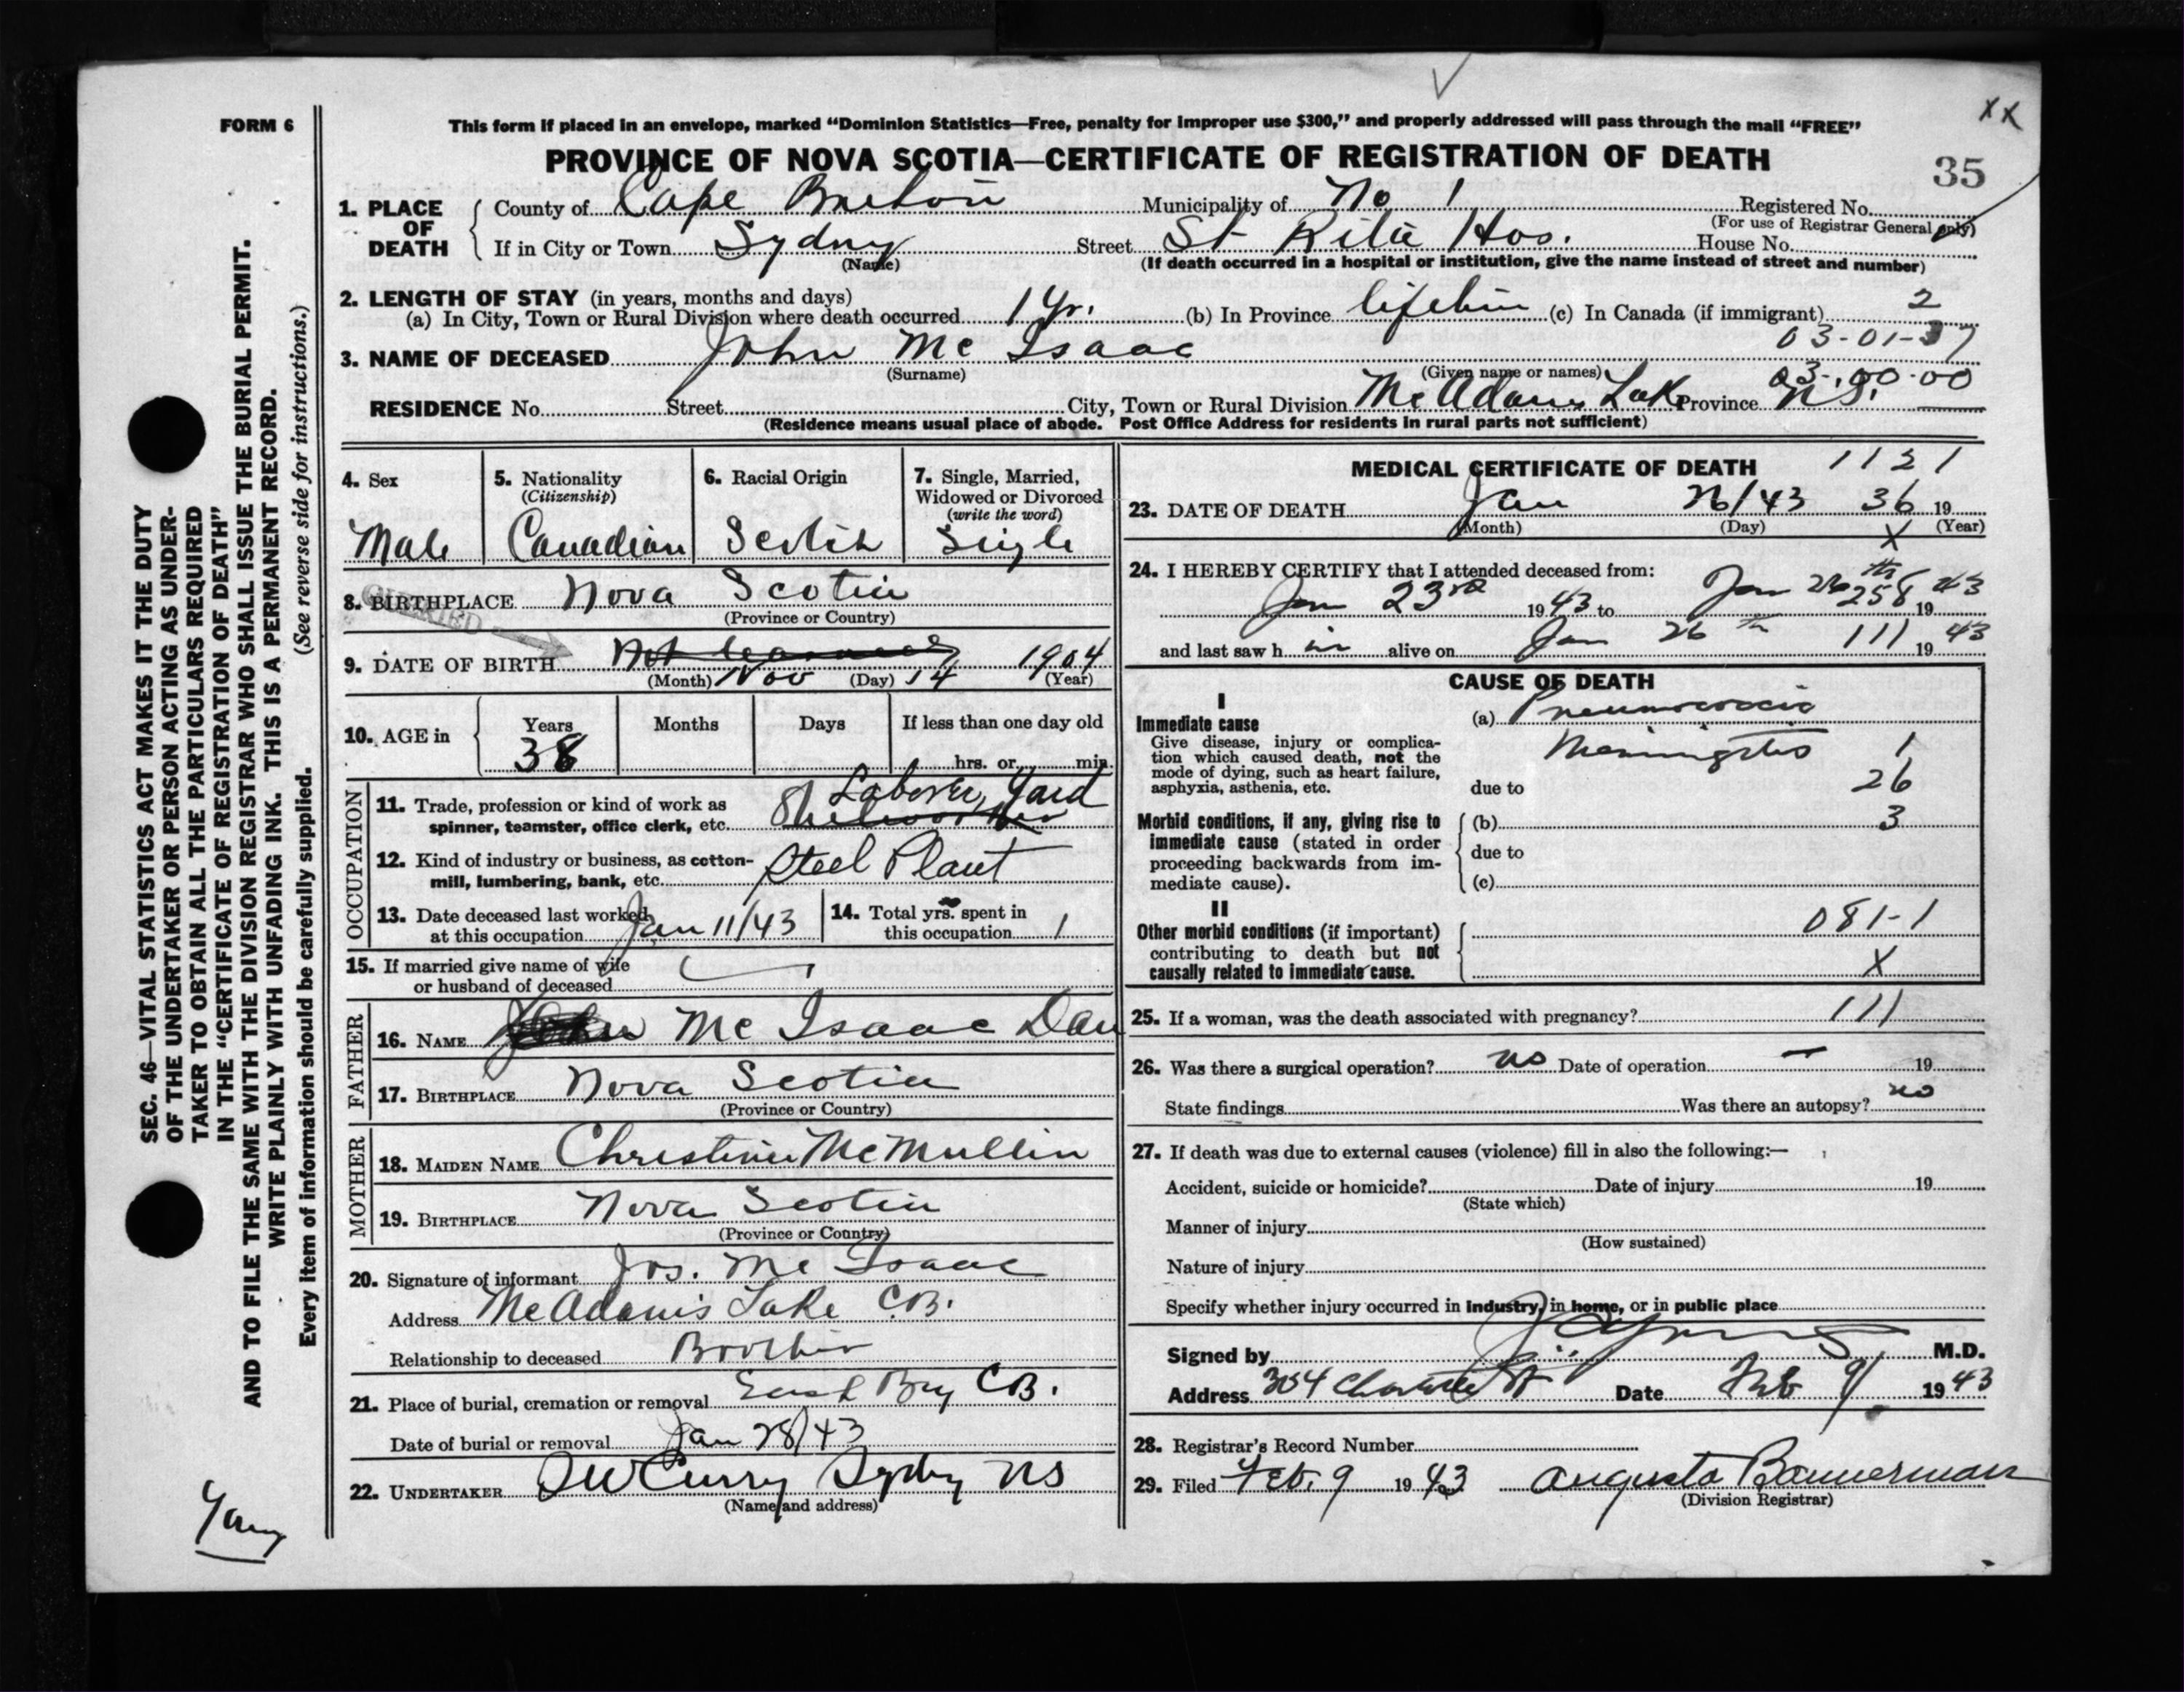 FORM 6
This form if placed in an envelope, marked “Dominion Statistics—Free, penalty for improper use $300,” and properly addressed will pass through the mail “FREE”
XX
PROVINCE OF NOVA SCOTIA—CERTIFICATE OF REGISTRATION OF DEATH
35
1. PLACE OF DEATH
County of Cape Breton Municipality of No 1 Registered No.
(For use of Registrar General only)
If in City or Town Sydney Street St Rita Hos. House No.
(Name) (If death occurred in a hospital or institution, give the name instead of street and number)
2. LENGTH OF STAY (in years, months and days)
(a) In City, Town or Rural Division where death occurred 1 yr. (b) In Province lifetime (c) In Canada (if immigrant) 2
03-01-37
3. NAME OF DECEASED John Mc Isaac
(Surname) (Given name or names)
03-00-00
RESIDENCE No. Street City, Town or Rural Division McAdams Lake Province N.S.
(Residence means usual place of abode. Post Office Address for residents in rural parts not sufficient)
4. Sex Male
5. Nationality (Citizenship) Canadian
6. Racial Origin Scotch
7. Single, Married, Widowed or Divorced (write the word) Single
8. BIRTHPLACE Nova Scotia
(Province or Country)
QUERIED
9. DATE OF BIRTH 1904
(Month) Nov (Day) 14 (Year)
10. AGE in Years Months Days If less than one day old
38 hrs. or min.
OCCUPATION
11. Trade, profession or kind of work as spinner, teamster, office clerk, etc. Laborer, Yard
12. Kind of industry or business, as cotton-mill, lumbering, bank, etc. Steel Plant
13. Date deceased last worked at this occupation Jan 11/43
14. Total yrs. spent in this occupation 1
15. If married give name of wife or husband of deceased
FATHER
16. NAME John Mc Isaac Dan
17. BIRTHPLACE Nova Scotia
(Province or Country)
MOTHER
18. MAIDEN NAME Christine McMullin
19. BIRTHPLACE Nova Scotia
(Province or Country)
20. Signature of informant Jos. Mc Isaac
Address McAdam's Lake C.B.
Relationship to deceased Brother
21. Place of burial, cremation or removal East Bay C.B.
Date of burial or removal Jan 28/43
22. UNDERTAKER Curry Sydney NS
(Name and address)
MEDICAL CERTIFICATE OF DEATH 1121
23. DATE OF DEATH Jan 26/43 36 19
(Month) (Day) (Year)
X
24. I HEREBY CERTIFY that I attended deceased from:
Jan 23rd 1943 to Jan 26th 258 1943
and last saw h im alive on Jan 26th 111 1943
CAUSE OF DEATH
I
Immediate cause
Give disease, injury or complication which caused death, not the mode of dying, such as heart failure, asphyxia, asthenia, etc.
(a) Pneumococcic
Meningitis 1
due to 26
Morbid conditions, if any, giving rise to immediate cause (stated in order proceeding backwards from immediate cause).
(b) 3
due to
(c)
II
Other morbid conditions (if important) contributing to death but not causally related to immediate cause.
081-1
X
25. If a woman, was the death associated with pregnancy? 111
26. Was there a surgical operation? no Date of operation — 19
State findings Was there an autopsy? no
27. If death was due to external causes (violence) fill in also the following:—
Accident, suicide or homicide? Date of injury 19
(State which)
Manner of injury
(How sustained)
Nature of injury
Specify whether injury occurred in industry, in home, or in public place
Signed by M.D.
Address 304 Charlotte St Date Feb 9/ 1943
28. Registrar's Record Number
29. Filed Feb. 9 1943 Augusta Bannerman
(Division Registrar)
SEC. 46—VITAL STATISTICS ACT MAKES IT THE DUTY
OF THE UNDERTAKER OR PERSON ACTING AS UNDER-
TAKER TO OBTAIN ALL THE PARTICULARS REQUIRED
IN THE “CERTIFICATE OF REGISTRATION OF DEATH”
AND TO FILE THE SAME WITH THE DIVISION REGISTRAR WHO SHALL ISSUE THE BURIAL PERMIT.
WRITE PLAINLY WITH UNFADING INK. THIS IS A PERMANENT RECORD.
Every item of information should be carefully supplied. (See reverse side for instructions.)